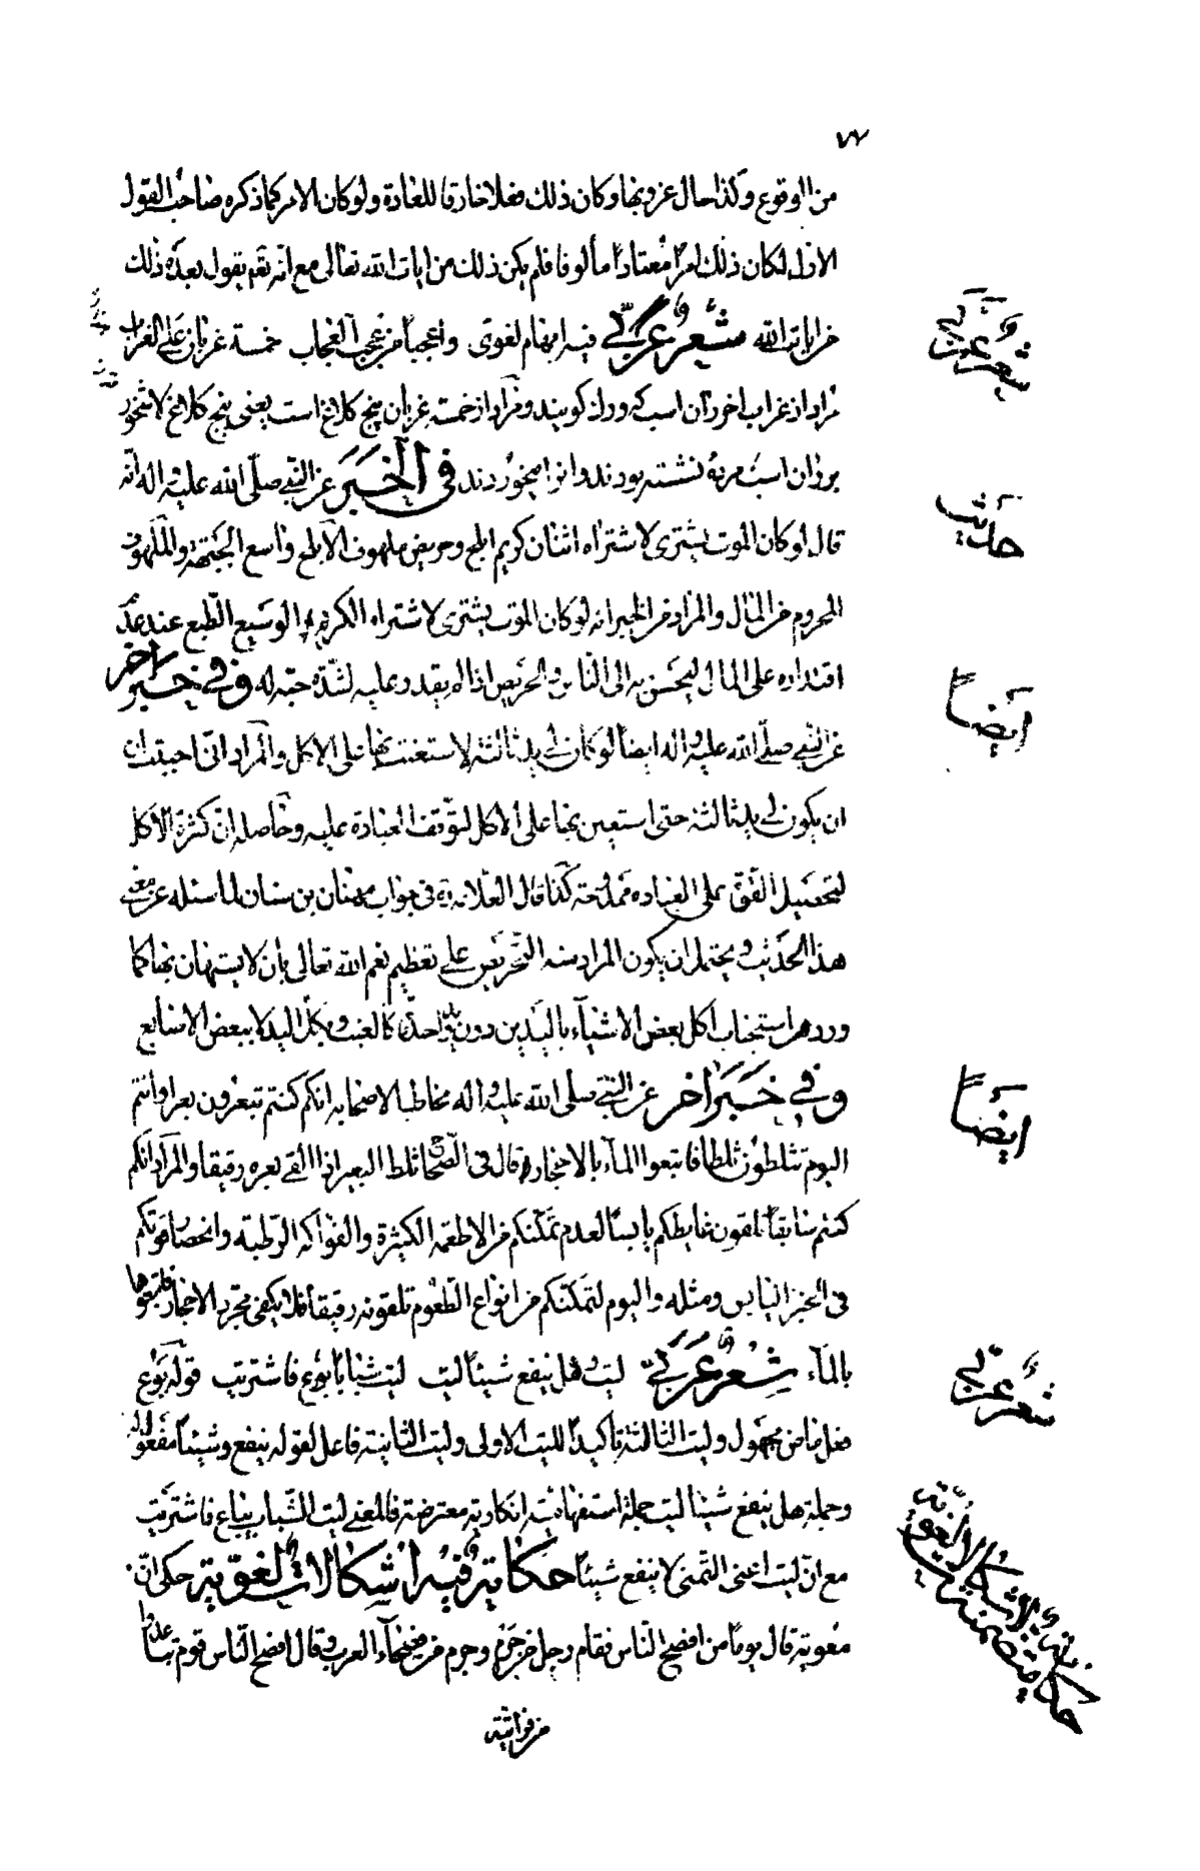 ٧٧
من الوقوع وكذا حال غروبها وكان ذلك فعلا خارقا للعادة ولو كان الامر كما ذكره صاحب القول
الاول لكان ذلك امرا معتادا مألوفا فلم يكن ذلك من ايات الله تعالى مع انه تعم يقول بعده ذلك
من ايات الله شعر عربي فيه ابهام لغوى واعجبا من عجب العجاب خمسة غربان على الغراب
شعر عربي
مراد از غراب اخر ران اسب كه ورك كويند ومراد از خمسة غربان پنج كلاغ است يعنى پنج كلاغ لاشخور
بر ران اسب مرده نشسته بودند وانرا ميخوردند في الخبر عن النبي صلى الله عليه واله انه
حديث
قال لو كان الموت يشترى لاشتراه اثنان كريم ابلج وحريص ملهوف الابلج واسع الجبهة والملهوف
المحروم من المال والمراد من الخبر انه لو كان الموت يشترى لاشتراه الكريم الوسيع الطبع عند عدم
اقتداره على المال ليحسن به الى الناس والحريص اذا لم يقدر عليه لشدة حبه له وفي خبر اخر
ايضا
عن النبي صلى الله عليه واله ايضا لو كان لي يد ثالثة لاستعنت بها على الاكل والمراد اني احببت ان
ان يكون لي يد ثالثة حتى استعين بها على الاكل لتوقف العبادة عليه وحاصله ان كثرة الاكل
لتحصيل القوة على العبادة ممدوحة كذا قال العلامة ره في جواب مهنان بن سنان لما سئله عن معنى
هذا الحديث ويحتمل ان يكون المراد منه التحريص على تعظيم نعم الله تعالى بان لا يستهان بها كما
ورد من استحباب اكل بعض الاشياء باليدين دون يد واحدة كالعنب وبكل اليد لا ببعض الاصابع
وفي خبر اخر عن النبي صلى الله عليه واله مخاطبا لاصحابه انكم كنتم تبعرون بعرا وانتم
ايضا
اليوم تثلطون ثلطا فاتبعوا الماء بالاحجار قال في الصحاح ثلط البعير اذا القى بعره رقيقا والمراد انكم
كنتم سابقا تلقون غايطكم يابسا لعدم تمكنكم من الاطعمة الكثيرة والفواكه الرطبة وانحصار قوتكم
في الخبز اليابس ومثله واليوم لتمكنكم من انواع الطعوم تلقونه رقيقا فلا يكفى مجرد الاحجار فاتبعوها
بالماء شعر عربي ليت وهل ينفع شيئا ليت ليت شبابا بوع فاشتريت قوله بوع
شعر عربي
فعل ماض مجهول وليت الثالثة تأكيد لليت الاولى وليت الثانية فاعل لقوله ينفع وشيئا مفعوله
وجملة هل ينفع شيئا ليت جملة استفهامية انكارية معترضة فالمعنى ليت الشباب يباع فاشتريت
مع ان ليت اعنى التمنى لا ينفع شيئا حكاية فيه اشكالات لغوية حكى ان
حكاية متضمنة الاشكال اللغوية
معوية قال يوما من افصح الناس فقام رجل من جرم وجرم من فصحاء العرب وقال افصح الناس قوم تباعدوا
من فراتية